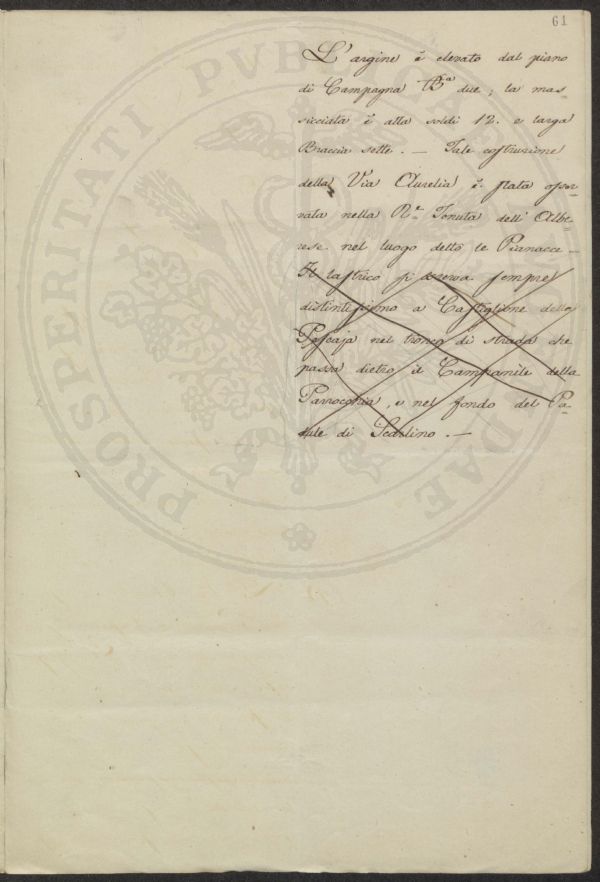 61
L'argine è elevato dal piano
di Campagna Bª due; la mas-
sicciata è alta soldi 12. e larga
Braccia sette. — Tale costruzione
della Via Aurelia è stata osser-
vata nella Rᵉ Tenuta dell' Albe-
rese nel luogo detto le Pianacce —
Il lastrico si osserva sempre
distintissimo a Castiglione della
Pescaja nel tronco di strada che
passa dietro il Campanile della
Parrocchia, e nel fondo del Pa-
dule di Scarlino. —
PROSPERITATI PVBLICAE